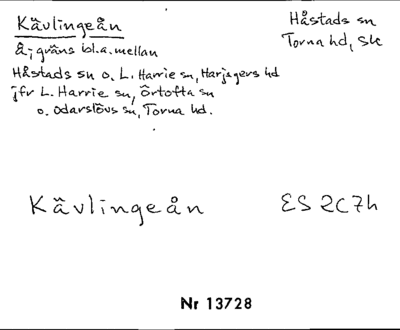 Kävlingeån
Håstads sn
Torna hd, Sk
Å; gräns bl.a. mellan
Håstads sn o. L. Harrie sn, Harjagers hd
jfr L. Harrie sn, Örtofta sn
o. Odarslövs sn, Torna hd.
Kävlingeån
ES 2C7h
Nr 13728